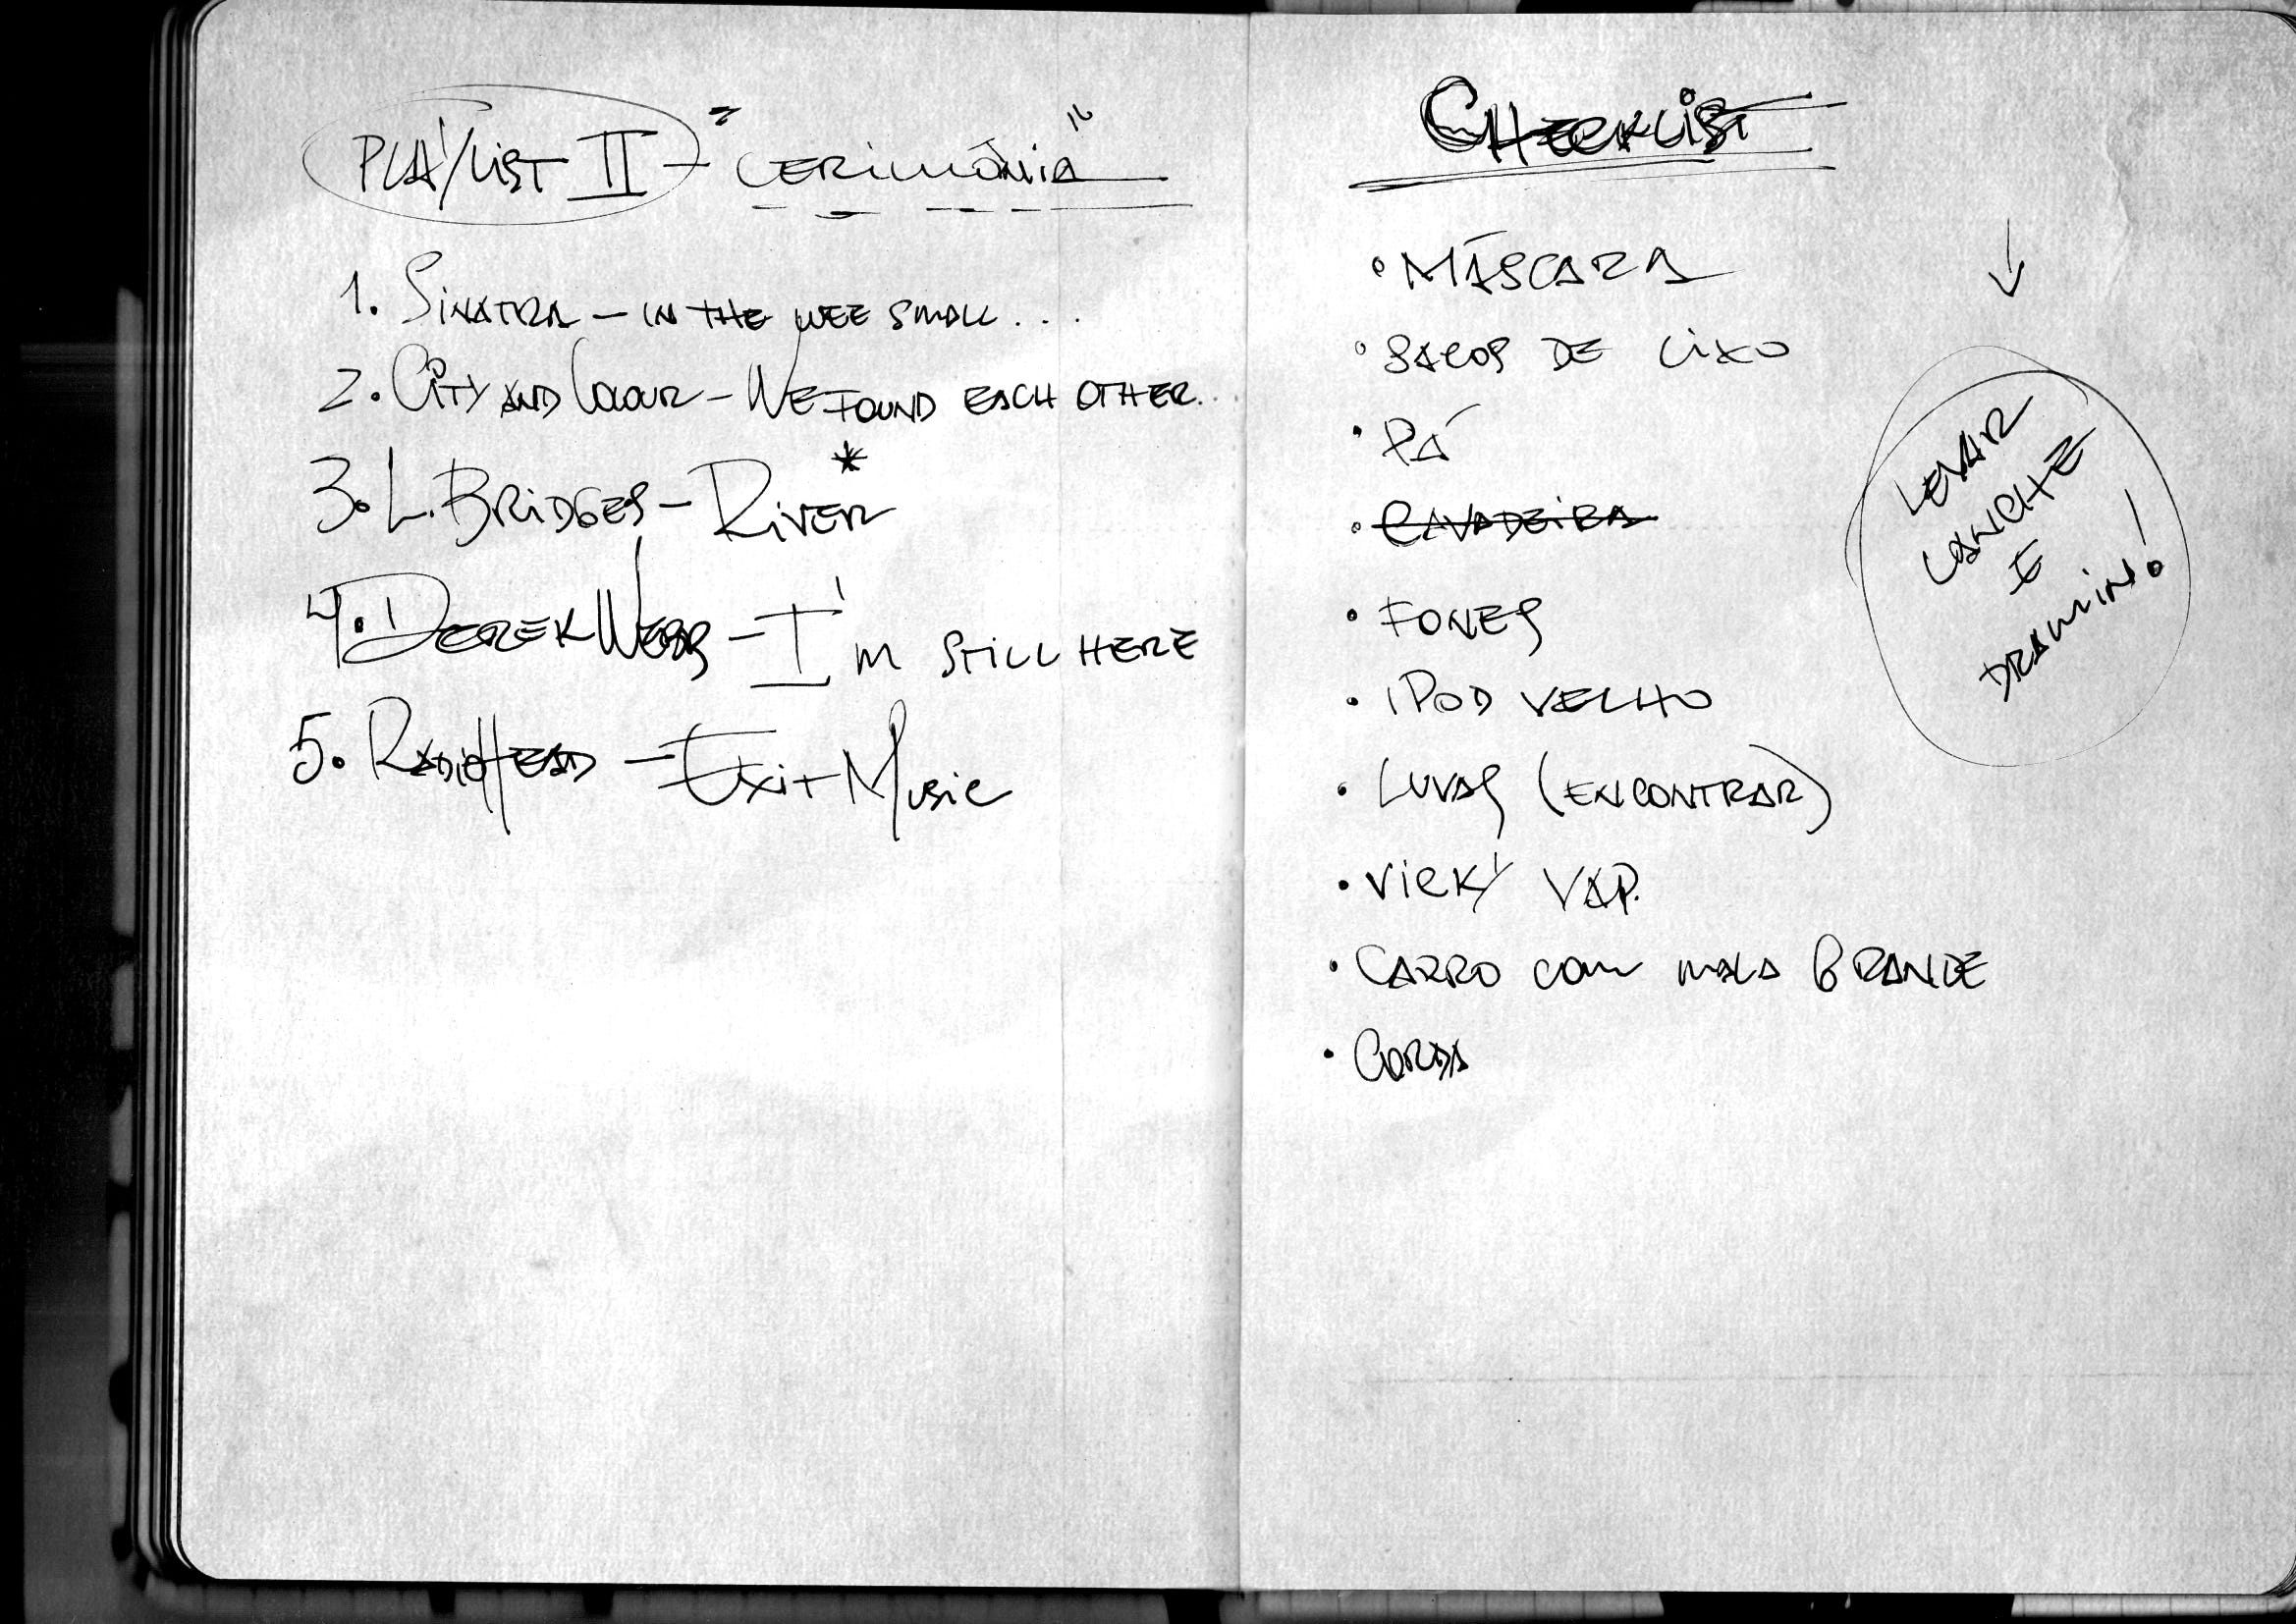 PLAYLIST II - "CERIMÔNIA"
1. SINATRA - IN THE WEE SMALL...
2. CITY AND COLOUR - WE FOUND EACH OTHER...
3. L. BRIDGES - RIVER *
4. DEREK WEBB - I'M STILL HERE
5. RADIOHEAD - EXIT MUSIC
CHECKLIST
• MÁSCARA
• SACOS DE LIXO
• PÁ
• CAVADEIRA
• FONES
• IPOD VELHO
• LUVAS (ENCONTRAR)
• VICKY VAP.
• CARRO COM MALA GRANDE
• CORDA
↓
LEVAR
LANCHE
E
DRAMIN!